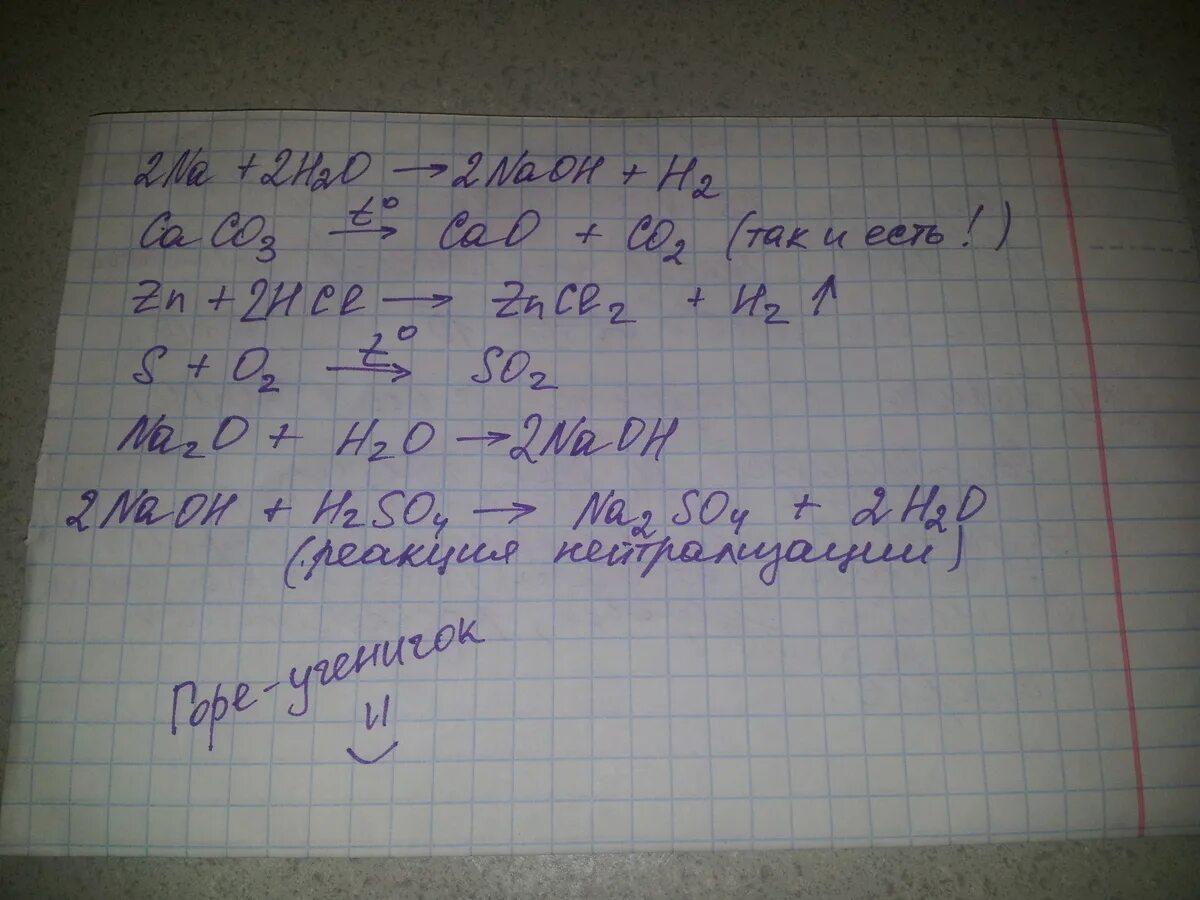 2Na + 2H₂O → 2NaOH + H₂
CaCO₃ t° → CaO + CO₂ (так и есть!)
Zn + 2HCl → ZnCl₂ + H₂ ↑
S + O₂ t° → SO₂
Na₂O + H₂O → 2NaOH
2NaOH + H₂SO₄ → Na₂SO₄ + 2H₂O
(реакция нейтрализации)
Горе-ученичок